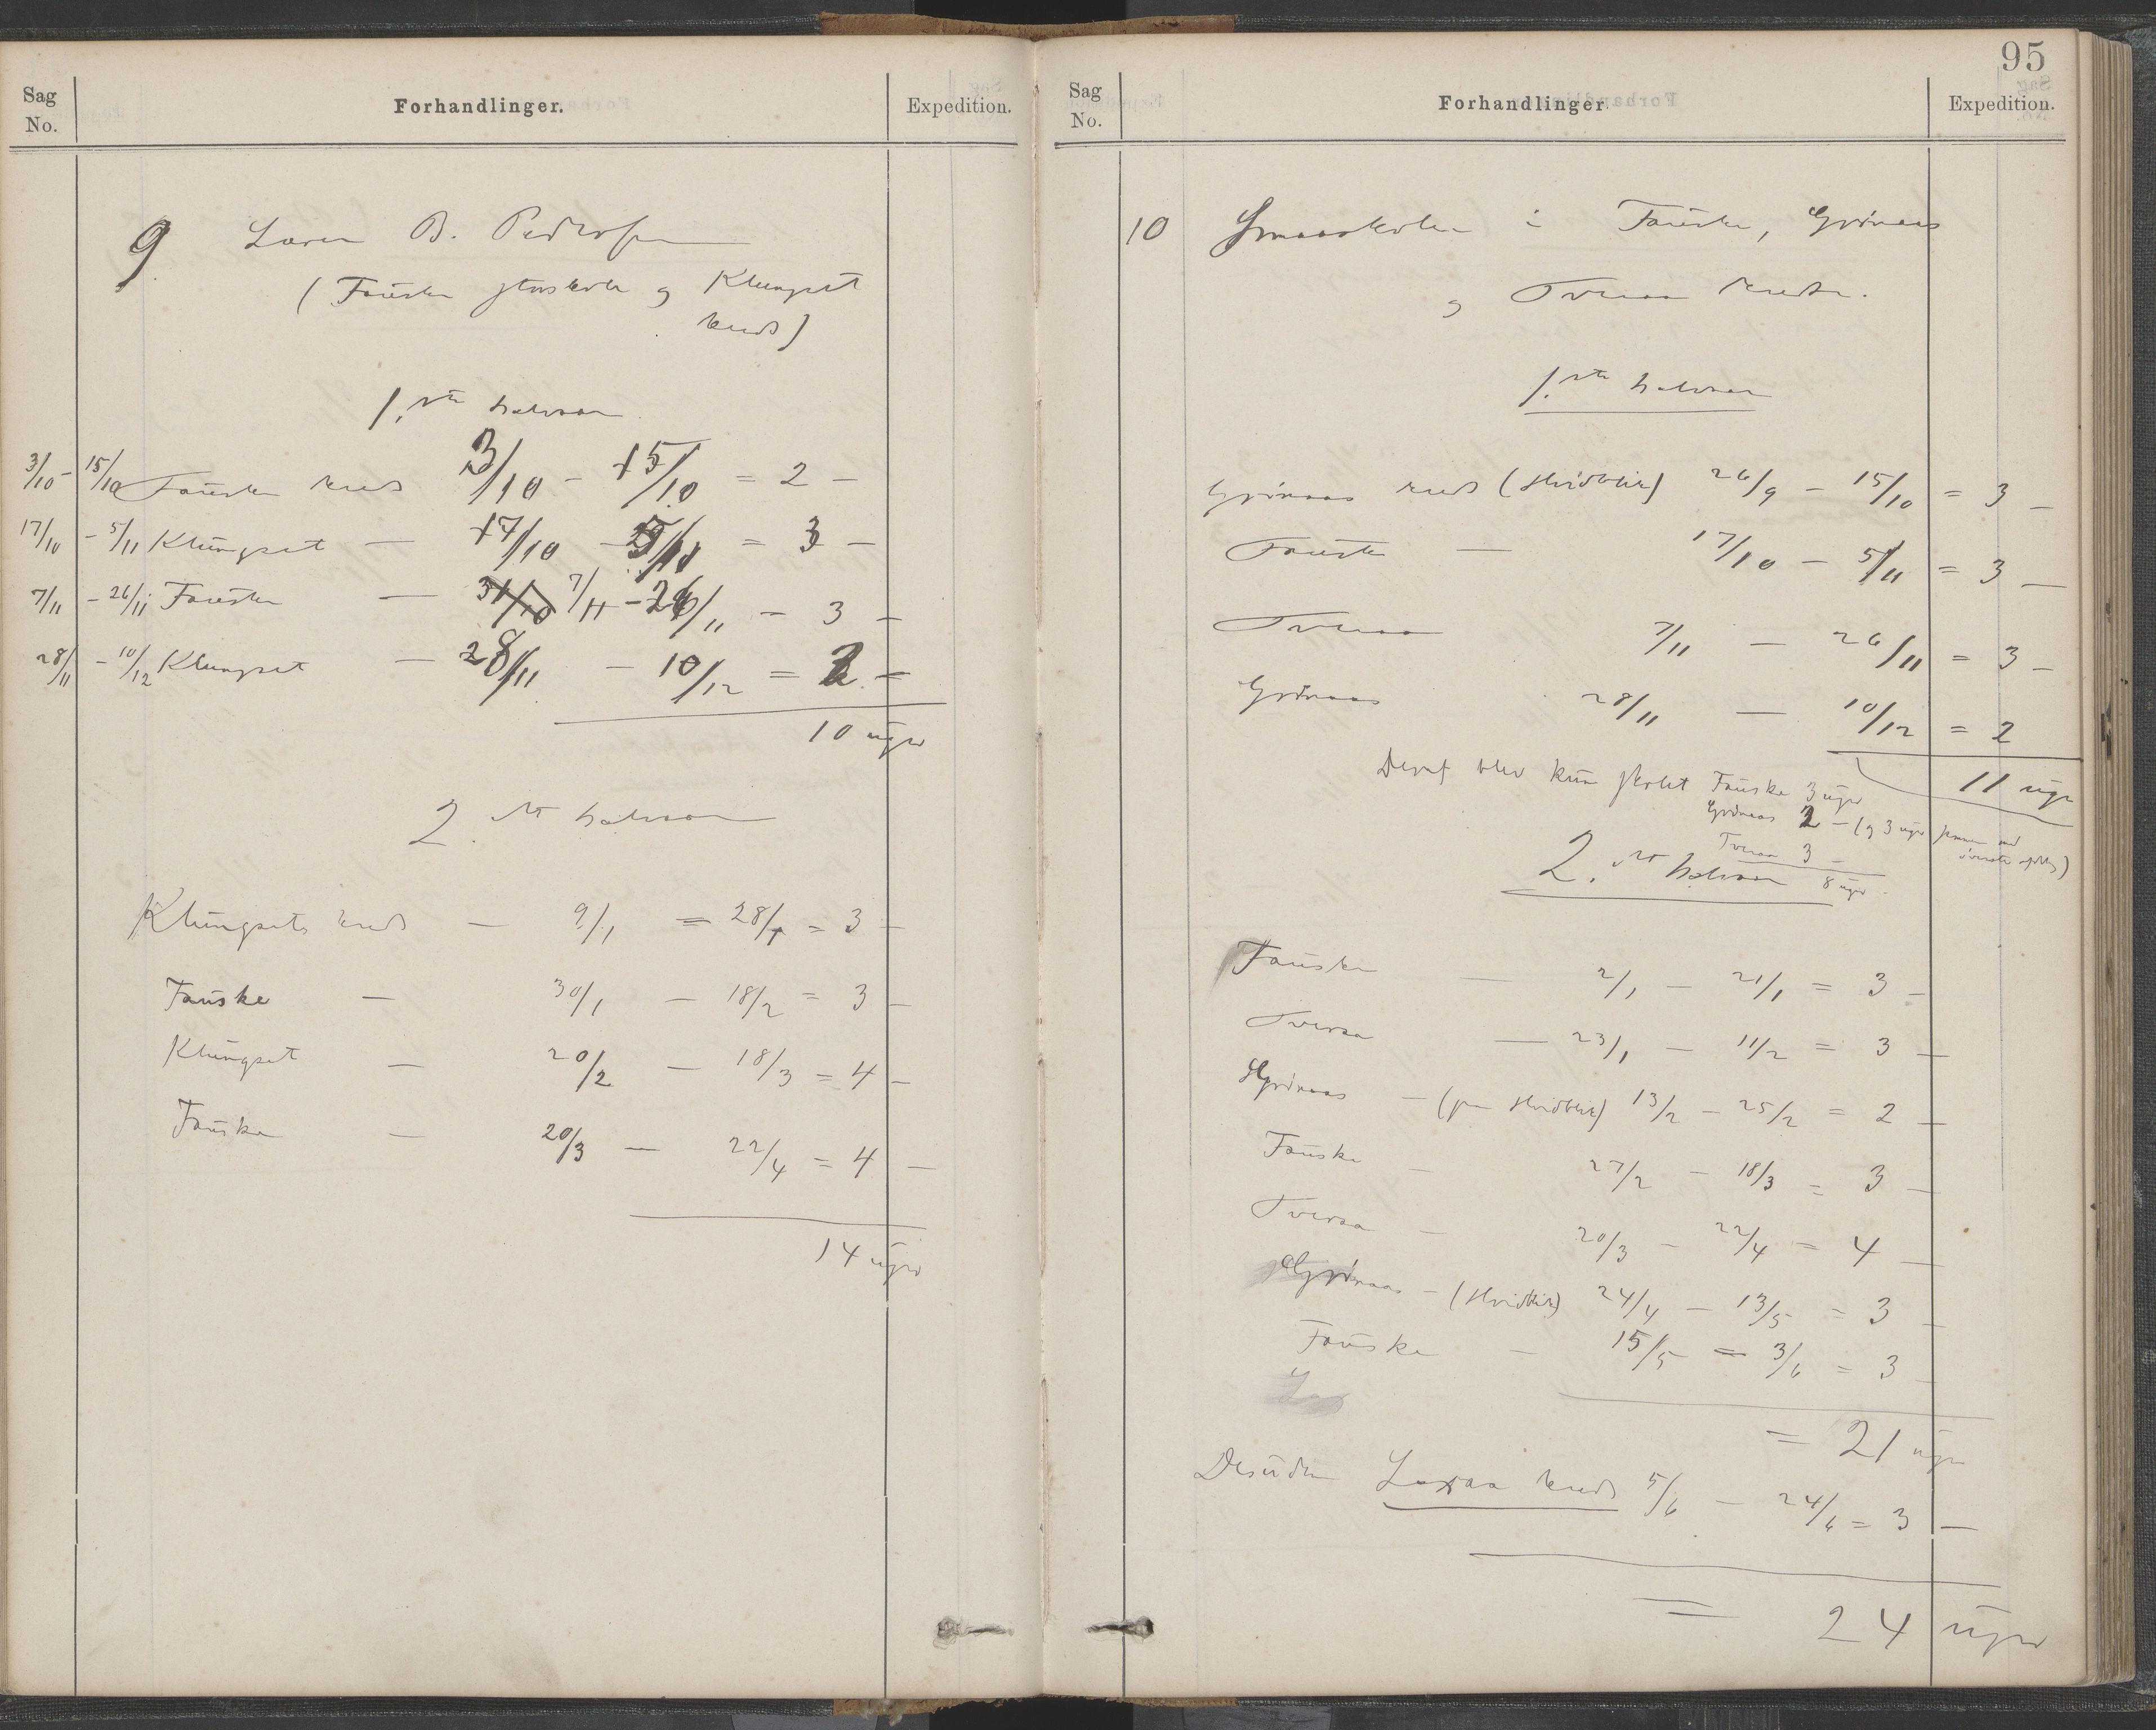 Sag
No.
Forhandlinger.
Expedition.
9 Laurs B. Pedersen
(Fauske storskole og Klungset
kreds)
1.ste halvaar
3/10 - 15/10 Fauske kreds 3/10 - 15/10 = 2 -
17/10 - 5/11 Klungset — 17/10 - 5/11 = 3 -
7/11 - 26/11 Fauske — 31/10 7/11 - 26/11 - 3 -
28/11 - 10/12 Klungset — 28/11 - 10/12 = 2 -
10 uger
2.det halvaar
Klungsets kreds — 9/1 = 28/1 = 3 -
Fauske — 30/1 - 18/2 = 3 -
Klungset — 20/2 - 18/3 = 4 -
Fauske — 20/3 - 22/4 = 4 -
14 uger
95
Sag
No.
Forhandlinger.
Expedition.
10 Smaaskolen i Fauske, Grønaas
og Tveraa kredse.
1.ste halvaar
Grønaas kreds (Hvidblik) 26/9 - 15/10 = 3 -
Fauske — 17/10 - 5/11 = 3 -
Tveraa 7/11 - 26/11 = 3 -
Grønaas 28/11 - 10/12 = 2
11 uger
Deraf blev kun skolet Fauske 3 uger
Grønaas 2 - (og 3 uger sammen med
øverste afdlg)
Tveraa 3 -
8 uger
2.det halvaar
Fauske — 2/1 - 21/1 = 3 -
Tveraa — 23/1 - 11/2 = 3 -
Grønaas - (paa Hvidblik) 13/2 - 25/2 = 2 -
Fauske - 27/2 - 18/3 = 3 -
Tveraa - 20/3 - 22/4 = 4 -
Grønaas - (Hvidblik) 24/4 - 13/5 = 3 -
Fauske - 15/5 = 3/6 = 3 -
= 21 uger
Desuden Laxaa kreds 5/6 - 24/6 = 3 -
= 24 uger